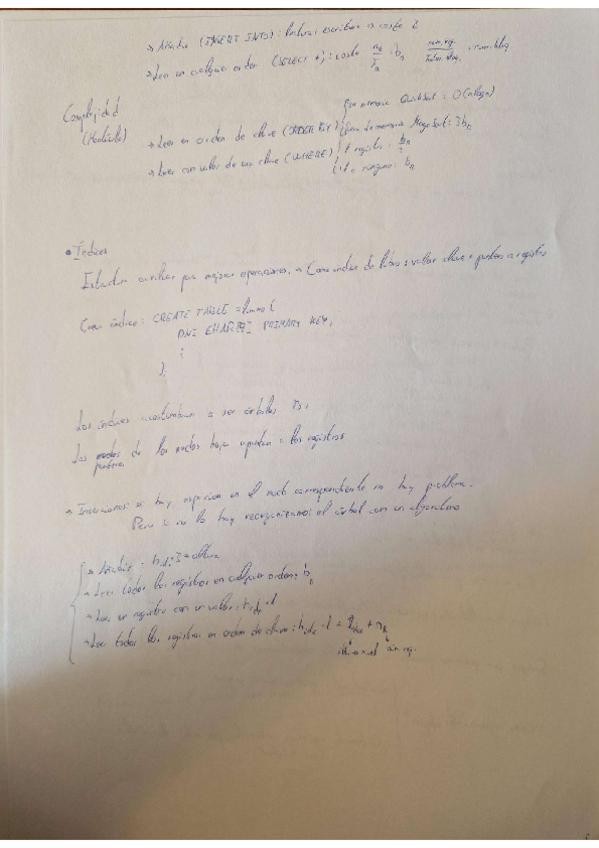 → Añadir (INSERT INTO): Lectura + escritura → coste 2
→ Leer en cualquier orden (SELECT *): coste n_R / f_R = b_R num.reg. / = num.bloq
Complejidad
(Montículo)
→ Leer en orden de clave (ORDER BY) { En memoria QuickSort: O(n log n)
Fuera de memoria MergeSort: 3b_R
→ Leer con valor de una clave (WHERE) { 1 registro: b_R / 2
1 o ninguno: b_R
• Índices
Estructura auxiliar para mejorar operaciones. → Como índice de libros: valor clave + puntero a registro
Crear índice: CREATE TABLE alumno (
DNI CHAR PRIMARY KEY,
:
);
Los índices acostumbran a ser árboles B+
Los punteros de los nodos hoja apuntan a los registros
→ Insertamos: si hay espacio en el nodo correspondiente no hay problema.
Pero si no lo hay reorganizamos el árbol con un algoritmo
→ Añadir: altura
→ Leer todos los registros en cualquier orden: b_R
→ Leer un registro con un valor: h_idx + 1
→ Leer todos los registros en orden de clave: h_idx - 1 + + n_R
núm reg.